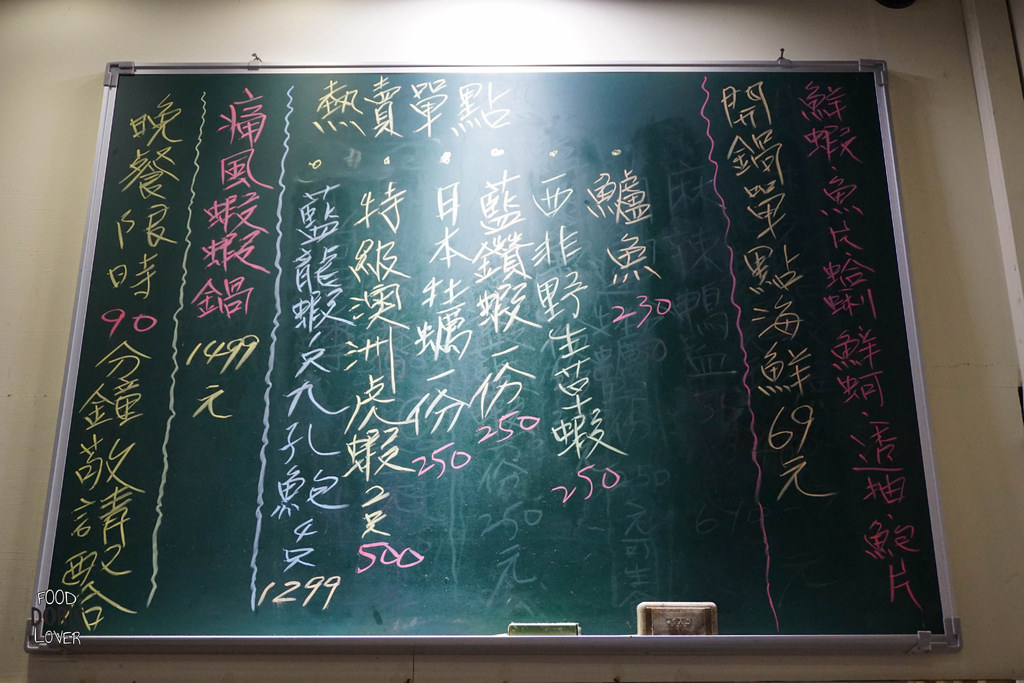 鮮蝦、魚片、蛤蜊、鮮蚵、透抽、鮑片
開鍋單點海鮮69元
熱賣單點
鱸魚230
西非野生草蝦250
藍鑽蝦一份250
日本牡蠣一份250
特級澳洲虎蝦2只500
藍龍蝦1只九孔鮑4只1299
痛風蝦蝦鍋1499元
晚餐限時90分鐘敬請配合
FOOD
LOVER